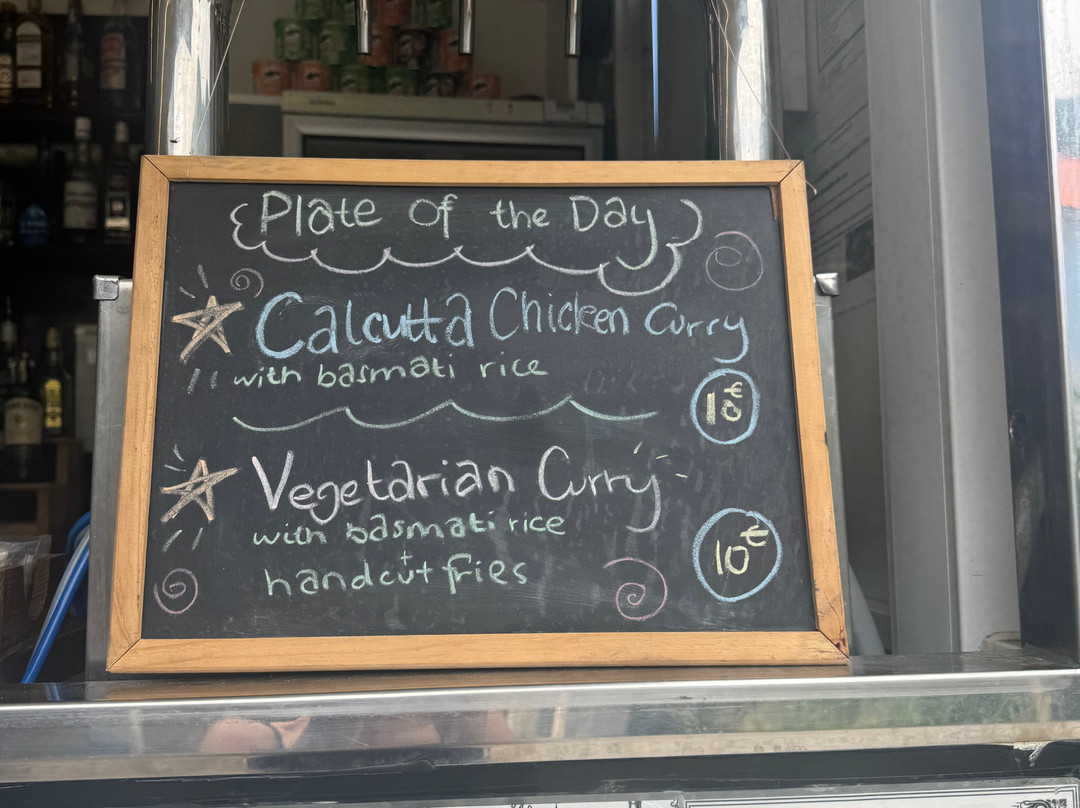 Plate of the Day
Calcutta Chicken Curry
with basmati rice
10€
Vegetarian Curry
with basmati rice
+
handcut fries
10€